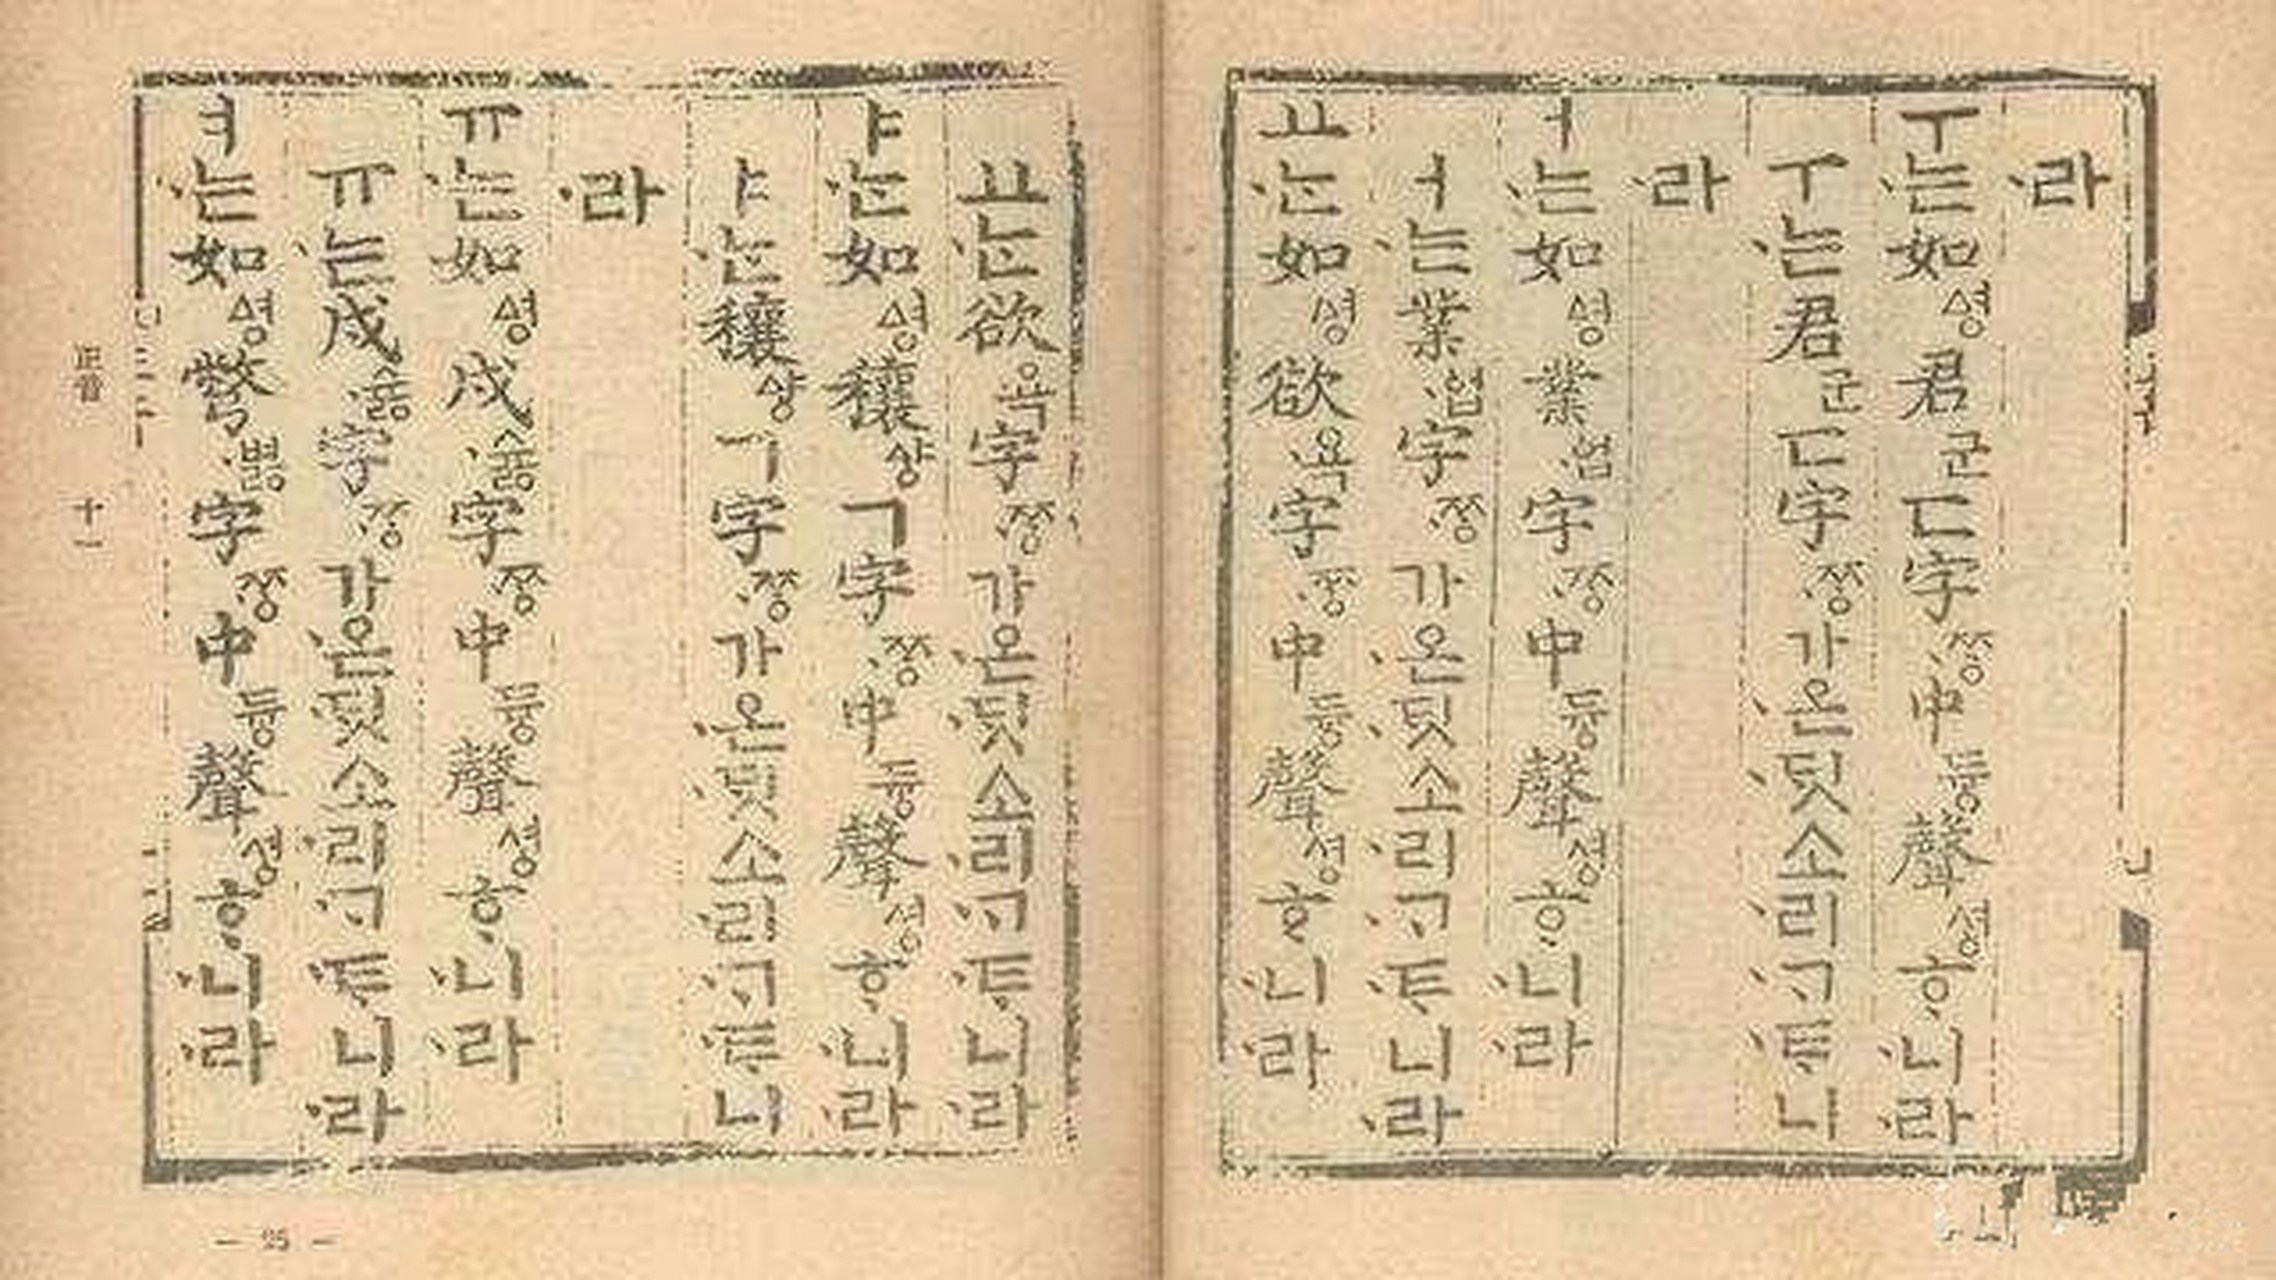 ·라
ㅜ·는如ᅀᅧᆼ君군ㄷ字·ᄍᆞᆼ中듀ᇰ聲셔ᇰᄒᆞ·니·라
ㅜ·는君군ㄷ字·ᄍᆞᆼ가·온·딧소·리·ᄀᆞ·ᄐᆞ니
·라
ㅓ·는如ᅀᅧᆼ業·업字·ᄍᆞᆼ中듀ᇰ聲셔ᇰᄒᆞ·니·라
ㅓ·는業·업字·ᄍᆞᆼ가·온·딧소·리·ᄀᆞ·ᄐᆞ니·라
ㅛ·ᄂᆞᆫ如ᅀᅧᆼ欲·욕字·ᄍᆞᆼ中듀ᇰ聲셔ᇰᄒᆞ·니·라
ㅛ·ᄂᆞᆫ欲·욕字·ᄍᆞᆼ가·온·딧소·리·ᄀᆞ·ᄐᆞ니·라
ㅑ·ᄂᆞᆫ如ᅀᅧᆼ穰ᅀᅣᇰㄱ字·ᄍᆞᆼ中듀ᇰ聲셔ᇰᄒᆞ·니·라
ㅑ·ᄂᆞᆫ穰ᅀᅣᇰㄱ字·ᄍᆞᆼ가·온·딧소·리·ᄀᆞ·ᄐᆞ니
·라
ㅠ·는如ᅀᅧᆼ戌·슈ᇙ字·ᄍᆞᆼ中듀ᇰ聲셔ᇰᄒᆞ·니·라
ㅠ·는戌·슈ᇙ字·ᄍᆞᆼ가·온·딧소·리·ᄀᆞ·ᄐᆞ니·라
ㅕ·는如ᅀᅧᆼ彆·벼ᇙ字·ᄍᆞᆼ中듀ᇰ聲셔ᇰᄒᆞ·니·라
正音 十一
— 25 —